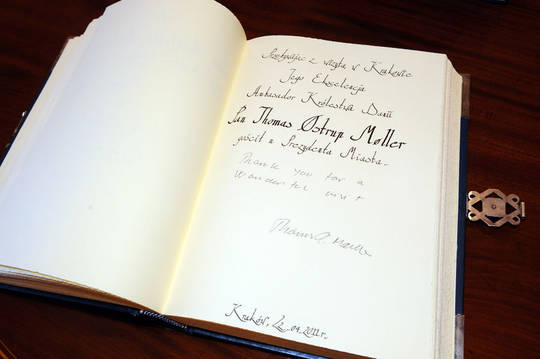 Przebywając z wizytą w Krakowie
Jego Ekscelencja
Ambasador Królestwa Danii
Pan Thomas Østrup Møller
gościł u Prezydenta Miasta.
Thank you for a
wonderful visit
Thomas Ø. Møller
Kraków, .04.2011 r.